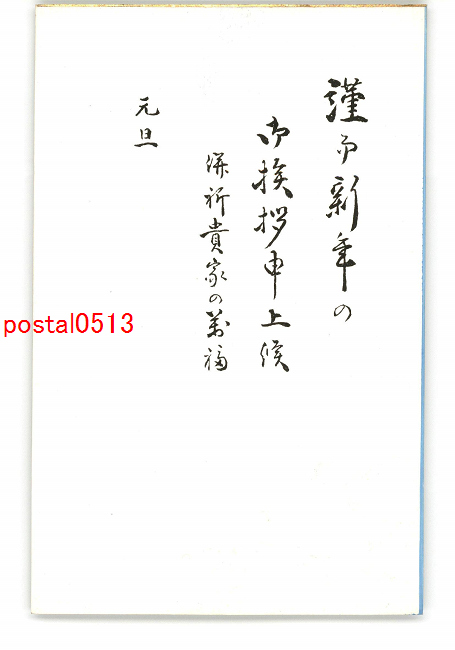 謹而新年の
御挨拶申上候
併祈貴家の萬福
元旦
postal0513